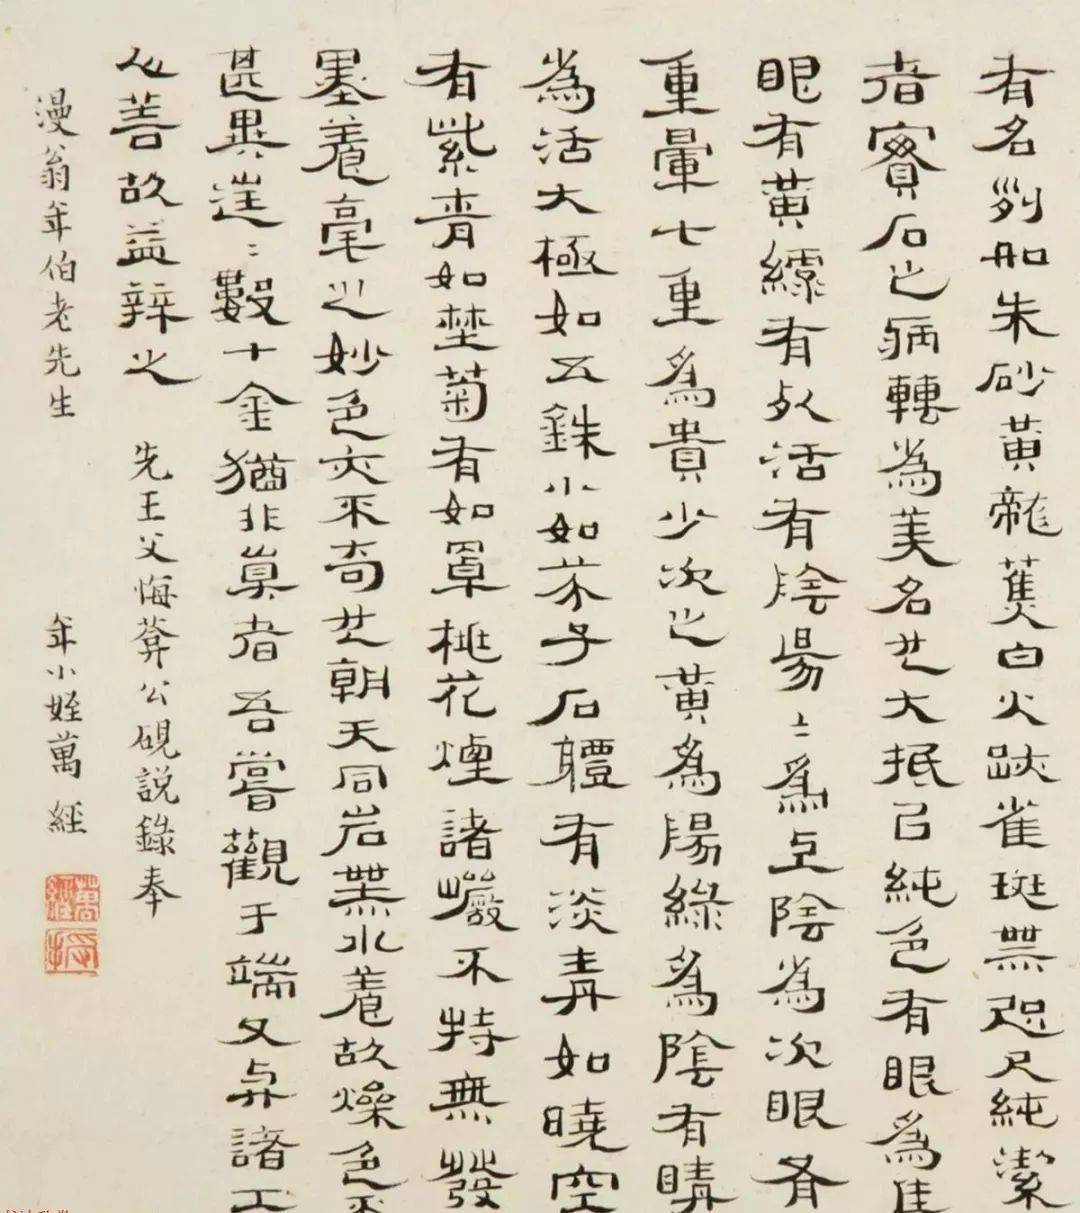 有名列如朱砂黃龍蕉白火雀斑無咫尺純潔
者實石之病轉為美名其大抵㠯純色有眼為佳
眼有黃有死活有陰陽〻為上陰為次眼有
重暈七重為貴少次之黃為陽綠為陰有睛
為活大極如五銖小如芥子石軆有淡青如曉空
有紫青如埜菊有如罩桃花煙諸巖不特無發
墨養毫之妙色亦不奇其朝天同岩無水養故燥色不
甚異往〻數十金猶非真者吾嘗觀于端又與諸工
心善故益辯之
先王父悔葊公硯說錄奉
漫翁年伯老先生
年小姪萬經
萬經